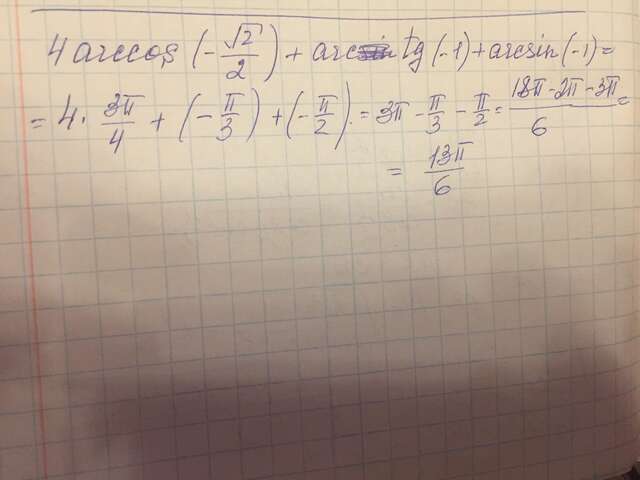 4 arccos (-√2/2) + arctg (-1) + arcsin (-1) =
= 4 · 3π/4 + (-π/3) + (-π/2) = 3π - π/3 - π/2 = (18π - 2π - 3π)/6 =
= 13π/6